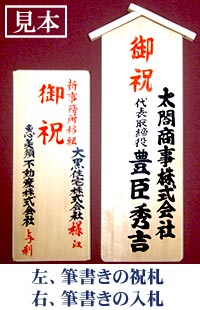 見本
御祝
新事務所移転
大黒住宅株式会社様江
恵美須不動産株式会社
与利
御祝
太閤商事株式会社
代表取締役 豊臣秀吉
左、筆書きの祝札
右、筆書きの入札